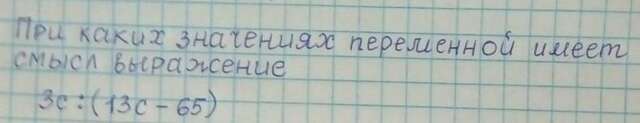 При каких значениях переменной имеет
смысл выражение
3с : (13с - 65)